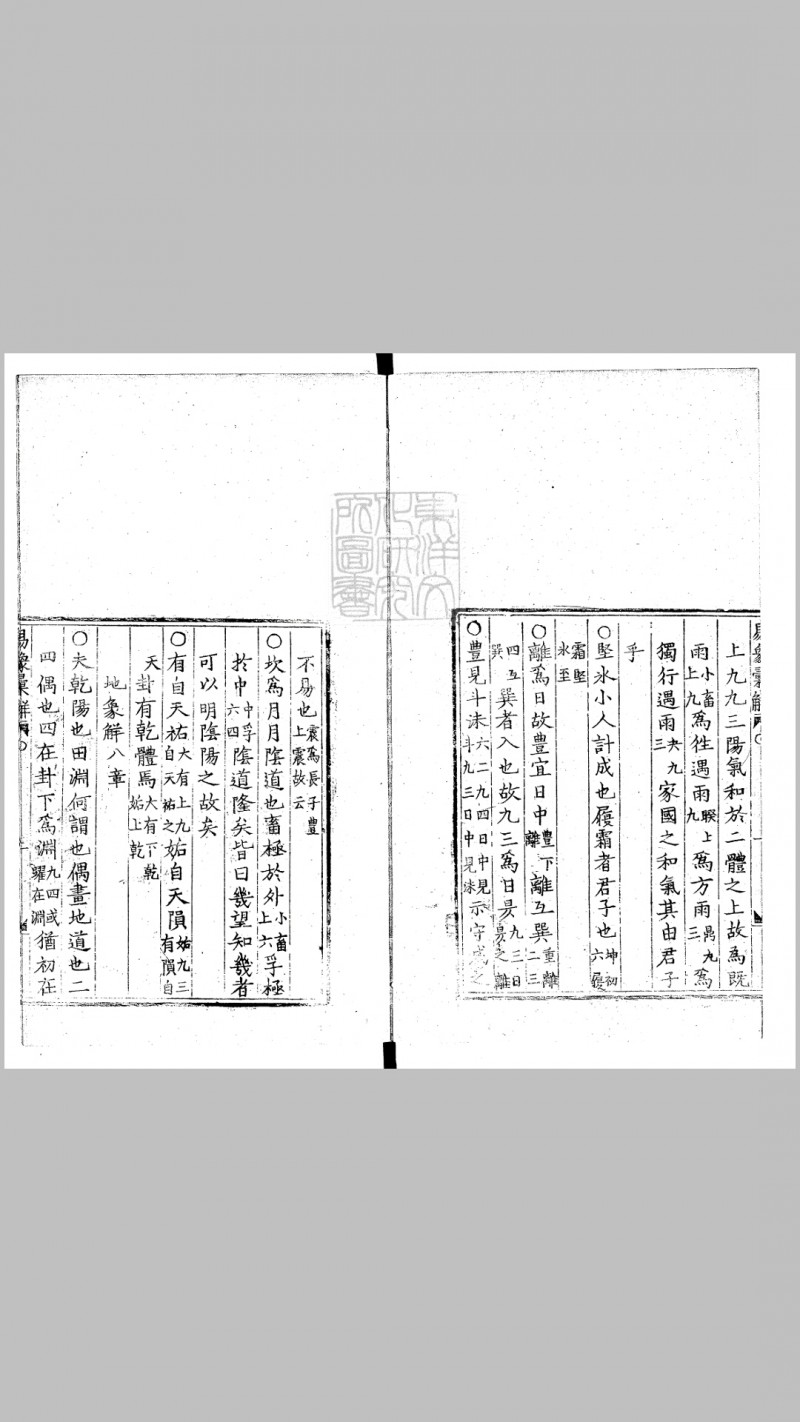 上九九三陽氣和於二體之上故爲既
雨小畜上九爲徃遇雨睽上九爲方雨鼎九三爲
獨行遇雨夬九三家國之和氣其由君子
乎
○堅氷小人計成也履霜者君子也坤初六履
霜堅氷至
○離爲日故豊宜日中豊下離離互巽重離二三
四互巽巽者入也故九三爲日昃九三日昃之離
○豊見斗沬六二九四日中見斗九三日中見沬示守成之
不易也震爲長子豊上震故云
○坎爲月月陰道也畜極於外小畜上六孚極
於中中孚六四陰道隆矣皆曰幾望知幾者
可以明陰陽之故矣
○有自天祐大有上九自天祐之姤自天隕姤九三有隕自
天卦有乾體焉大有下乾姤上乾
地象解八章
○夫乾陽也田淵何謂也偶畫地道也二
四偶也四在卦下爲淵九四或躍在淵猶初在
易象彙解
東洋文化研究所圖書